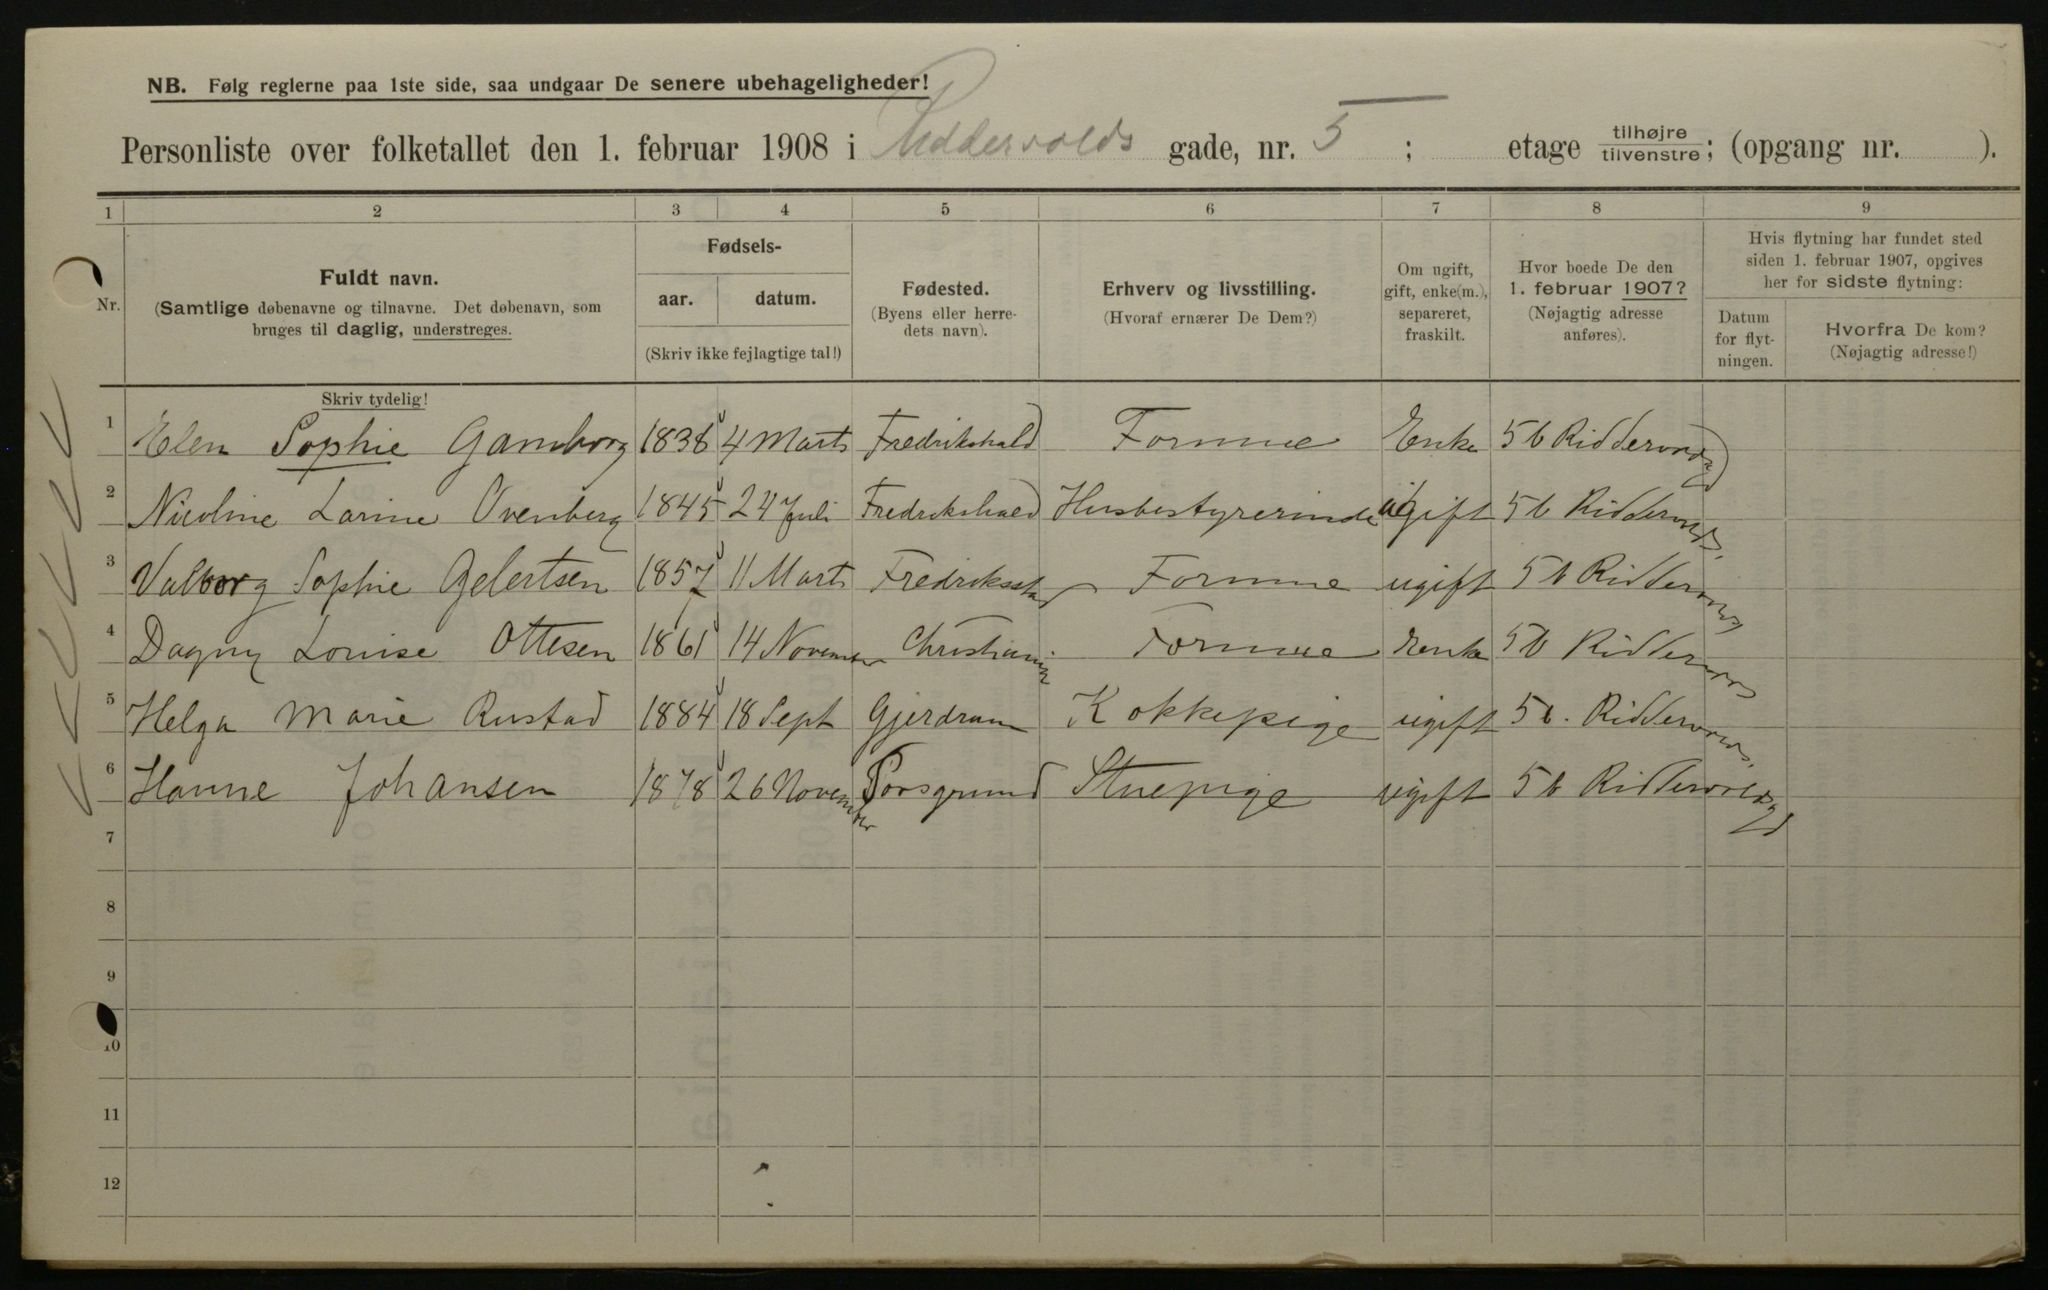 NB. Følg reglerne paa 1ste side, saa undgaar De senere ubehageligheder!
Personliste over folketallet den 1. februar 1908 i Riddervolds gade, nr. 5 ; etage tilhøjre tilvenstre; (opgang nr. ).
1 2 3 4 5 6 7 8 9
Nr.
Fuldt navn.
(Samtlige døbenavne og tilnavne. Det døbenavn, som
bruges til daglig, understreges.
Skriv tydelig!
Fødsels-
aar. datum.
(Skriv ikke fejlagtige tal!)
Fødested.
(Byens eller herre-
dets navn).
Erhverv og livsstilling.
(Hvoraf ernærer De Dem?)
Om ugift,
gift, enke(m.),
separeret,
fraskilt.
Hvor boede De den
1. februar 1907?
(Nøjagtig adresse
anføres).
Hvis flytning har fundet sted
siden 1. februar 1907, opgives
her for sidste flytning:
Datum
for flyt-
ningen.
Hvorfra De kom?
(Nøjagtig adresse!)
1 Elen Sophie Gamborg 1838 4 Marts Fredrikshald Formue Enke 5b
2 Nicoline Larine Ovenberg 1845 24 Juli Fredrikshald Husbestyrerinde ugift 5b
3 Valborg Sophie Gjelertsen 1857 11 Marts Fredriksstad Formue ugift 5b
4 Dagny Louise Ottesen 1861 14 November Christiania Formue Enke 5b
5 Helga Marie Rustad 1884 18 Sept Gjerdrum Kokkepige ugift 5b. Riddervolds.
6 Hanne Johansen 1878 26 November Porsgrund Stuepige ugift 5b Riddervoldsgd
7
8
9
10
11
12